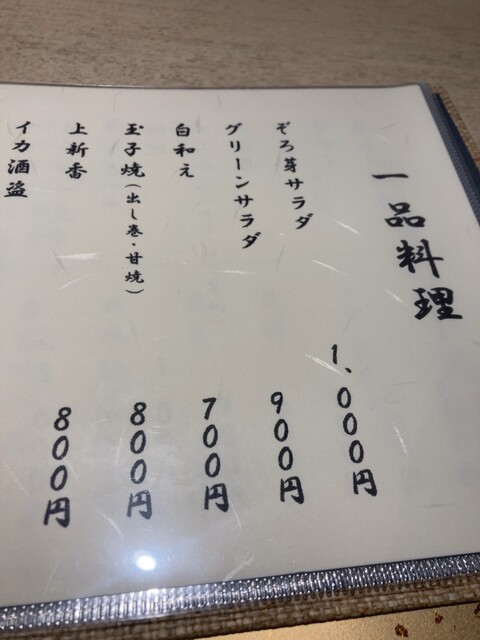 一品料理
ぞろ芽サラダ 1,000円
グリーンサラダ 900円
白和え 700円
玉子焼(出し巻・甘焼) 800円
上新香 800円
イカ酒盗